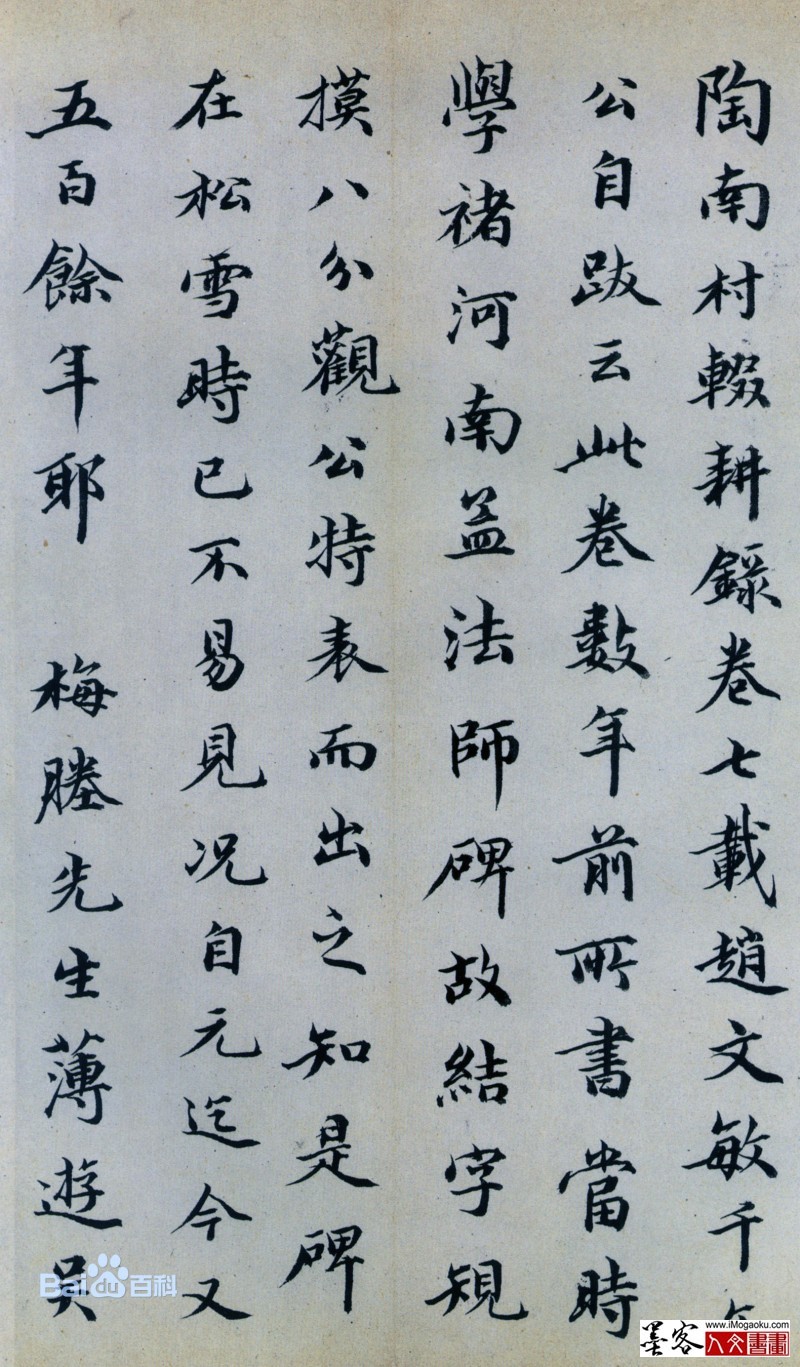 陶南村輟耕錄卷七載趙文敏千
公自跋云此卷數年前所書當時
學褚河南孟法師碑故結字規
摸八分觀公特表而出之知是碑
在松雪時已不易見况自元迄今又
五百餘年耶 梅塍先生薄遊吴
Baidu百科
www.iMogaoku.com
墨客人文書畫